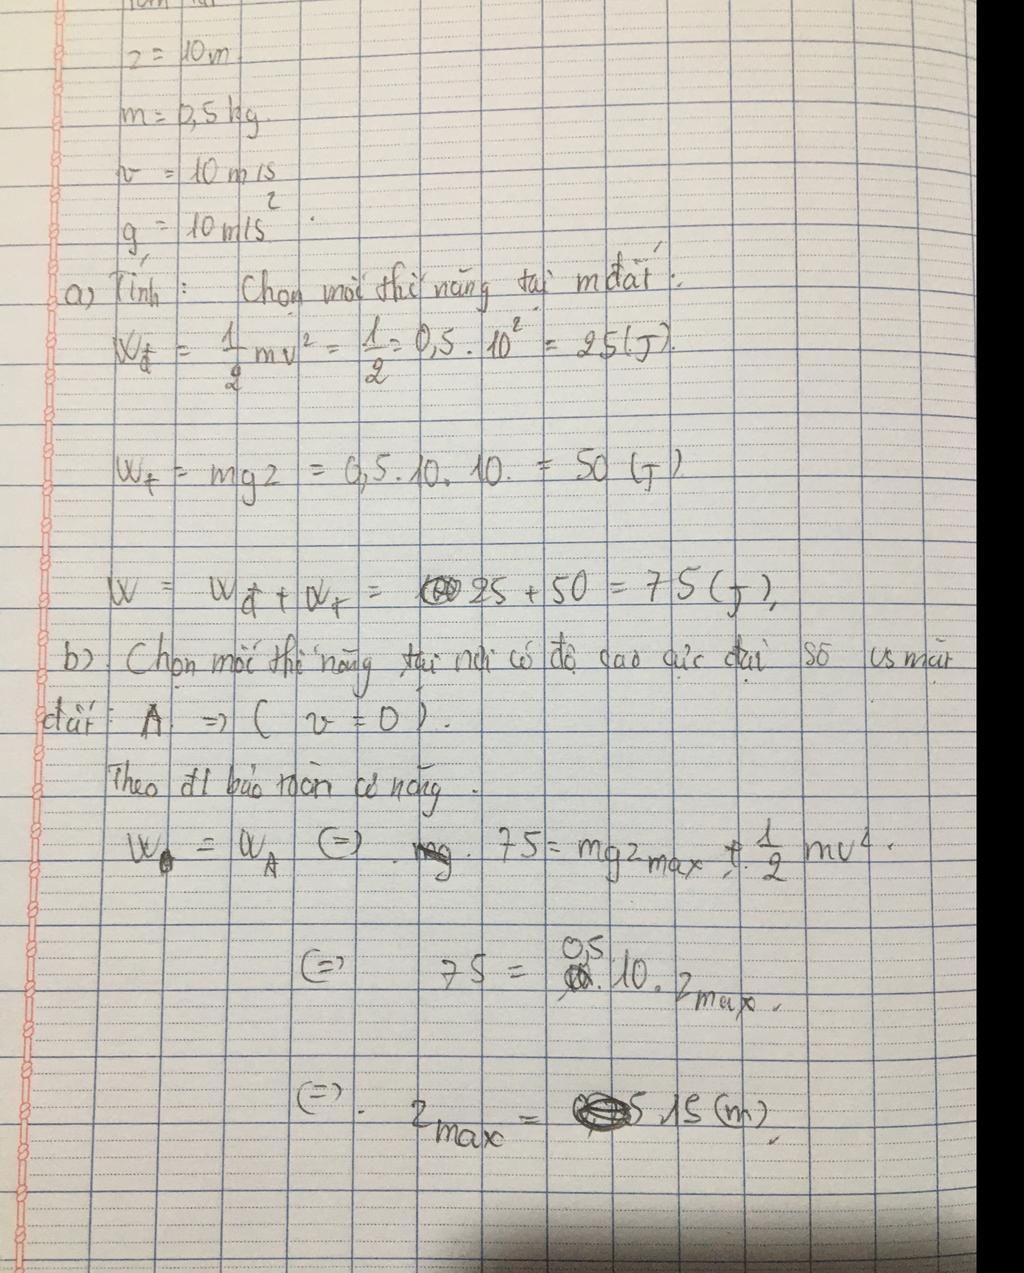 z = 10m
m = 0,5 kg
v = 10 m/s
g = 10 m/s²
a) Tính : Chọn mốc thế năng tại m đất :
Wđ = 1/2 mv² = 1/2 = 0,5 . 10² = 25 (J).
Wt = mgz = 0,5 . 10 . 10 . = 50 (J)
W = Wđ + Wt = 25 + 50 = 75 (J),
b) Chọn mốc thế năng tại nơi có độ cao cực đại so vs mặt
đất : A => ( v = 0 ) .
Theo đl bảo toàn cơ năng .
W = WA (=) 75 = mgzmax + 1/2 mv² .
(=) 75 = 0,5 . 10 . zmax .
(=) . zmax = 15 (m)